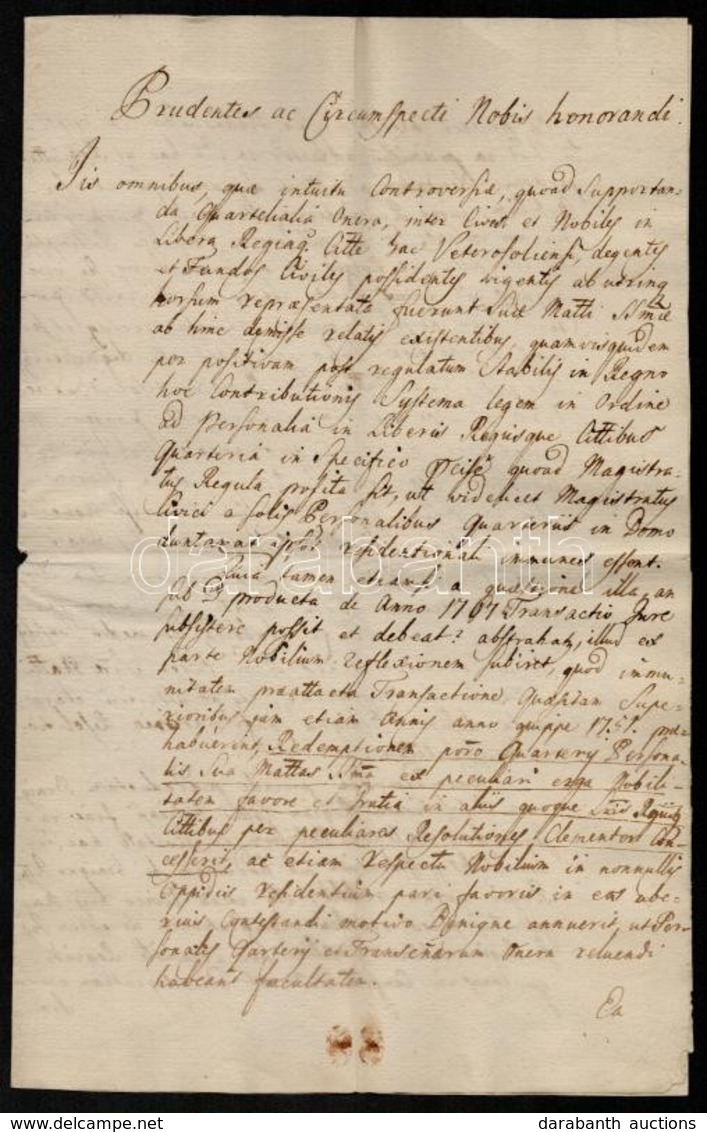 Prudentes ac Circumspecti Nobis honorandi.
Iis omnibus, quæ intuitu Controversiæ, quoad Supportan-
da Quartelialia Onera, inter Cives et Nobiles in
Libera Regiaq. Citte hac Veterosoliensi, degentes
et Fundos Civiles possidentes vigentis ab utring
horsum repræsentata fuerunt Suæ Matti SSmæ
ab hinc demisse relatis existentibus, quamvis quidem
per positivam post regulatum Stabilis in Regno
hoc Contributionis Systema legem in Ordine
ad Personalia in Liberis Regiisque Cittibus
Quarteria in Specifico quoad Magistra-
tus Regula posita sit, ut videlicet Magistratus
Civici a solis Personalibus Quarteriis in Domo
duntaxat residentionali immunes essent.
Quia tamen etiamsi a quæstione illa, an
sub producta de Anno 1767 Transactio Jure
subsistere possit et debeat? abstrahat, illud ex
parte Nobilium reflexionem subiret, quod immu-
nitatem præattacta Transactione Quæsitam Supe-
rioribus jam etiam Annis anno quippe 1751. præ-
habuerint, Redemptionem porro Quarterii Persona-
lis Sua Mattas SSma ex peculiari erga Nobili-
tatem favore et Gratia in aliis quoque Suis Regiis
Cittibus per peculiares Resolutiones Clementer Con-
cesserit, ac etiam respectu Nobilium in nonnullis
Oppidis residentium pari favoris in eos ube-
rius Contestandi motivo Benigne annuerit, ut Per-
sonalis Quarterii et Transennarum Onera reluendi
habeant facultatem.
Ea
darabanth
darabanth auctions